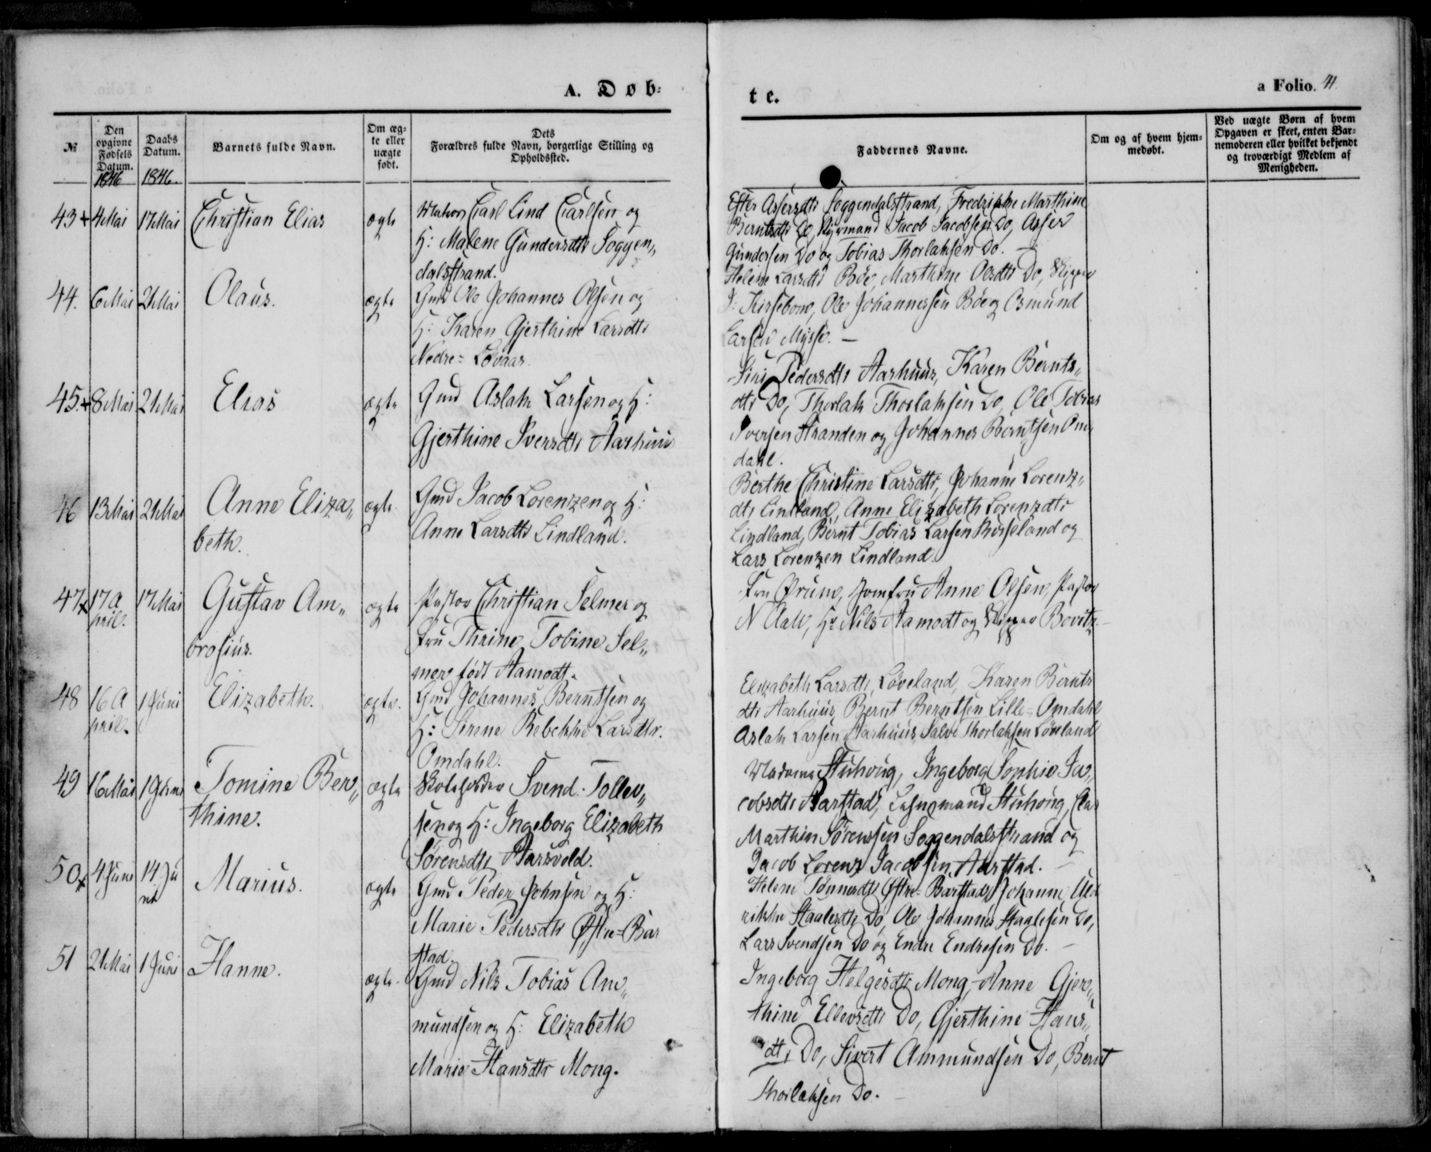 A. Døb-
te.
a Folio. 4
№
Den opgivne Fødsels Datum.
1846
Daabs Datum.
1846.
Barnets fulde Navn.
Om ægte eller uægte født.
Dets Forældres fulde Navn, borgerlige Stilling og Opholdssted.
Faddernes Navne.
Om og af hvem hjemmedøbt.
Ved uægte Børn af hvem Opgaven er skeet, enten Barnemoderen eller hvilket bekjendt og troværdigt Medlem af Menigheden.
43 + 4 Mai 17 Mai Christian Elias ægte Carl Lind Carlsen og
H: Malene Gundersdtr Soggen„
dalsstrand.
Asersdtr Soggendalsstrand, Fredrikke Marthine
Berntsdtr Do, Styrmand Jacob Jacobsen Do, Aser
Gundersen Do og Tobias Thorlaksen Do. —
44. 6 Mai 21 Mai Olaus. ægte Gmd Ole Johannes Olsen og
H: Karen Gjerthine Larsdtr
Nedre-Løvaas
Helene Larsdtr Bøe, Marthine Olsdtr Do, Skipper
J. Kirsebom, Ole Johannessen Bøe og Osmund
Larsen Mysse. —
45. + 8 Mai 21 Mai Elias ægte Gmd Aslak Larsen og H:
Gjerthine Iversdtr Aarhuus
Siri Pedersdtr Aarhuus, Karen Bernts„
dtr Do, Thorlak Thorlaksen Do, Ole Tobias
Iversen Stranden og Johannes Berntsen Om
dahl.
46 13 Mai 21 Mai Anne Eliza„
beth. ægte. Gmd Jacob Lorenzen og H:
Anne Larsdtr Lindland.
Berthe Christine Larsdtr, Johanne Lorenz„
dtr Lindland, Anne Elizabeth Lorenzdtr
Lindland, Bernt Tobias Larsen Rosseland og
Lars Lorenzen Lindland
47 x 17 A
pril. 17 Mai Gustav Am„
brosius. ægte Pastor Christian Selmer og
Fru Thrine Tobine Sel„
mer født Aamodt.
Fru Ørum, Jomfru Anne Olsen, Pastor
N Aall, Hr. Nils Aamodt og Skipper
48 16 A
pril. 1 Juni Elizabeth. ægte. Gmd Johannes Berntsen og
H: Serene Rebekke Larsdtr.
Omdahl.
Elizabeth Larsdtr, Løveland, Karen Bernts
dtr Aarhuus, Bernt Berntsen Lille-Omdahl
Aslak Larsen Aarhuus, Salve Thorlaksen Løveland
49 16 Mai 1 Juni Tomine Ber„
thine. ægte Skoleholder Svend Tollev„
sen og H: Ingeborg Elizabeth
Sørensdtr Aarsvold.
Madame Stuhoug, Ingeborg Sophie Ja„
cobsdtr Aarstad, Lehnsmand Stuhoug,
Marthin Sørenssen Soggendalsstrand og
Jacob Lorenz Jacobsen Aarstad. —
50 x 4 Juni 14 Ju
ni Marius. ægte Gmd Peder Johnsen og H:
Marie Pedersdtr Østre-Bar
stad.
Helene Tønnesdtr Østre-Barstad, Johanne Ul„
rikke Staalesdtr Do, Ole Johannes Staalesen Do,
Lars Svendsen Do og Endre Endresen Do. —
51 21 Mai 1 Juni Hanne. ægte. Gmd Nils Tobias Am„
mundsen og H: Elizabeth
Marie Hansdtr Mong.
Ingeborg Helgesdtr Mong, Anne Gjer„
thine Ellevsdtr Do, Gjerthine Hans„
dtr Do, Sivert Ammundsen Do, Bernt
Thorlaksen Do. —